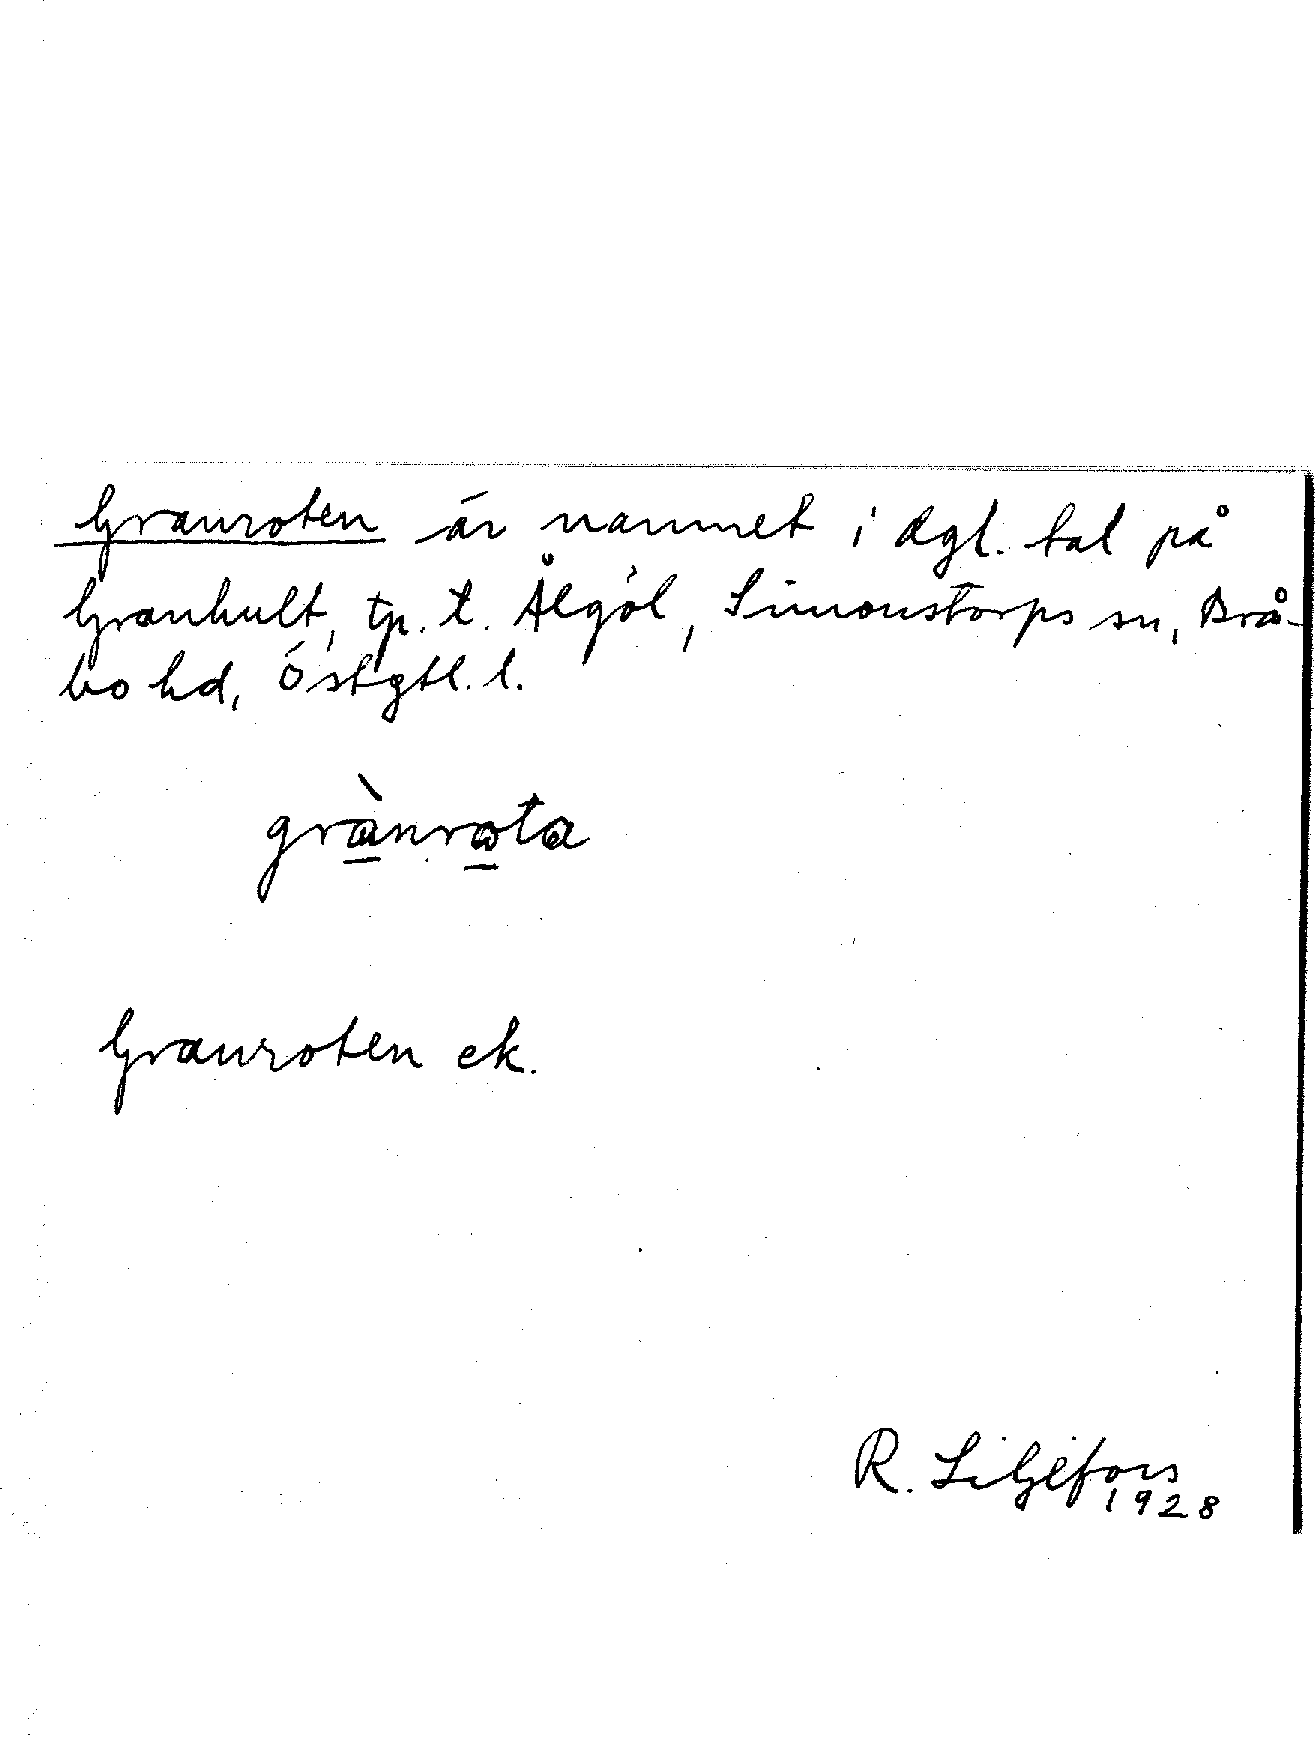 Granroten är namnet i dgl. tal på
Granhult, tp. t. Ålgöl, Simonstorps sn, Brå-
bo hd, Östgtl. l.
grànrota
Granroten ek.
R. Liljefors
1928